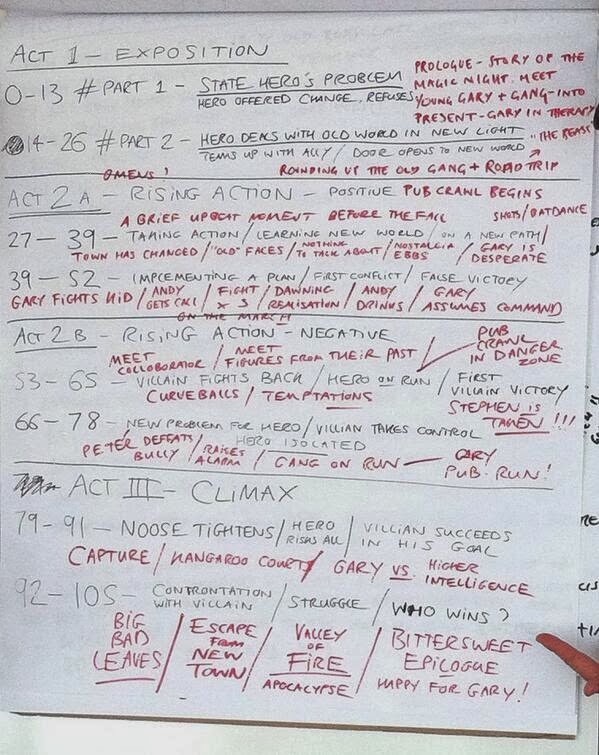 ACT 1 – EXPOSITION
0-13 # PART 1 - STATE HERO'S PROBLEM
HERO OFFERED CHANGE, REFUSES
PROLOGUE - STORY OF THE
MAGIC NIGHT. MEET
YOUNG GARY + GANG - INTO
PRESENT - GARY IN THERAPY
14-26 # PART 2 - HERO DEALS WITH OLD WORLD IN NEW LIGHT
"THE BEAST"
TEAMS UP WITH ALLY / DOOR OPENS TO NEW WORLD
OMENS!
ROUNDING UP THE OLD GANG + ROAD TRIP
ACT 2 A - RISING ACTION - POSITIVE PUB CRAWL BEGINS
A BRIEF UPBEAT MOMENT BEFORE THE FALL
SHOTS / BATDANCE
27 - 39 - TAKING ACTION / LEARNING NEW WORLD / ON A NEW PATH /
TOWN HAS CHANGED / "OLD" FACES / NOTHING TO TALK ABOUT / NOSTALGIA EBBS / GARY IS DESPERATE
39 - 52 - IMPLEMENTING A PLAN / FIRST CONFLICT / FALSE VICTORY
GARY FIGHTS KID / ANDY GETS CALL / FIGHT x 3 / DAWNING REALISATION / ANDY DRINKS / GARY ASSUMES COMMAND
ON THE MARCH
ACT 2 B - RISING ACTION - NEGATIVE
PUB
CRAWL
IN DANGER
ZONE
MEET COLLOBORATOR / MEET FIGURES FROM THEIR PAST
53 - 65 - VILLAIN FIGHTS BACK / HERO ON RUN / FIRST VILLAIN VICTORY
CURVEBALLS / TEMPTATIONS
STEPHEN IS
TAKEN !!!
66 - 78 - NEW PROBLEM FOR HERO / VILLIAN TAKES CONTROL
HERO ISOLATED
PETER DEFEATS BULLY / RAISES ALARM / GANG ON RUN - GARY PUB-RUN!
ACT III - CLIMAX
79 - 91 - NOOSE TIGHTENS / HERO RISKS ALL / VILLIAN SUCCEEDS IN HIS GOAL
CAPTURE / KANGAROO COURT / GARY VS. HIGHER INTELLIGENCE
92 - 105 - CONFRONTATION WITH VILLAIN / STRUGGLE / WHO WINS?
BIG BAD LEAVES / ESCAPE FROM NEW TOWN / VALLEY OF FIRE APOCALYPSE / BITTERSWEET EPILOGUE
HAPPY FOR GARY!